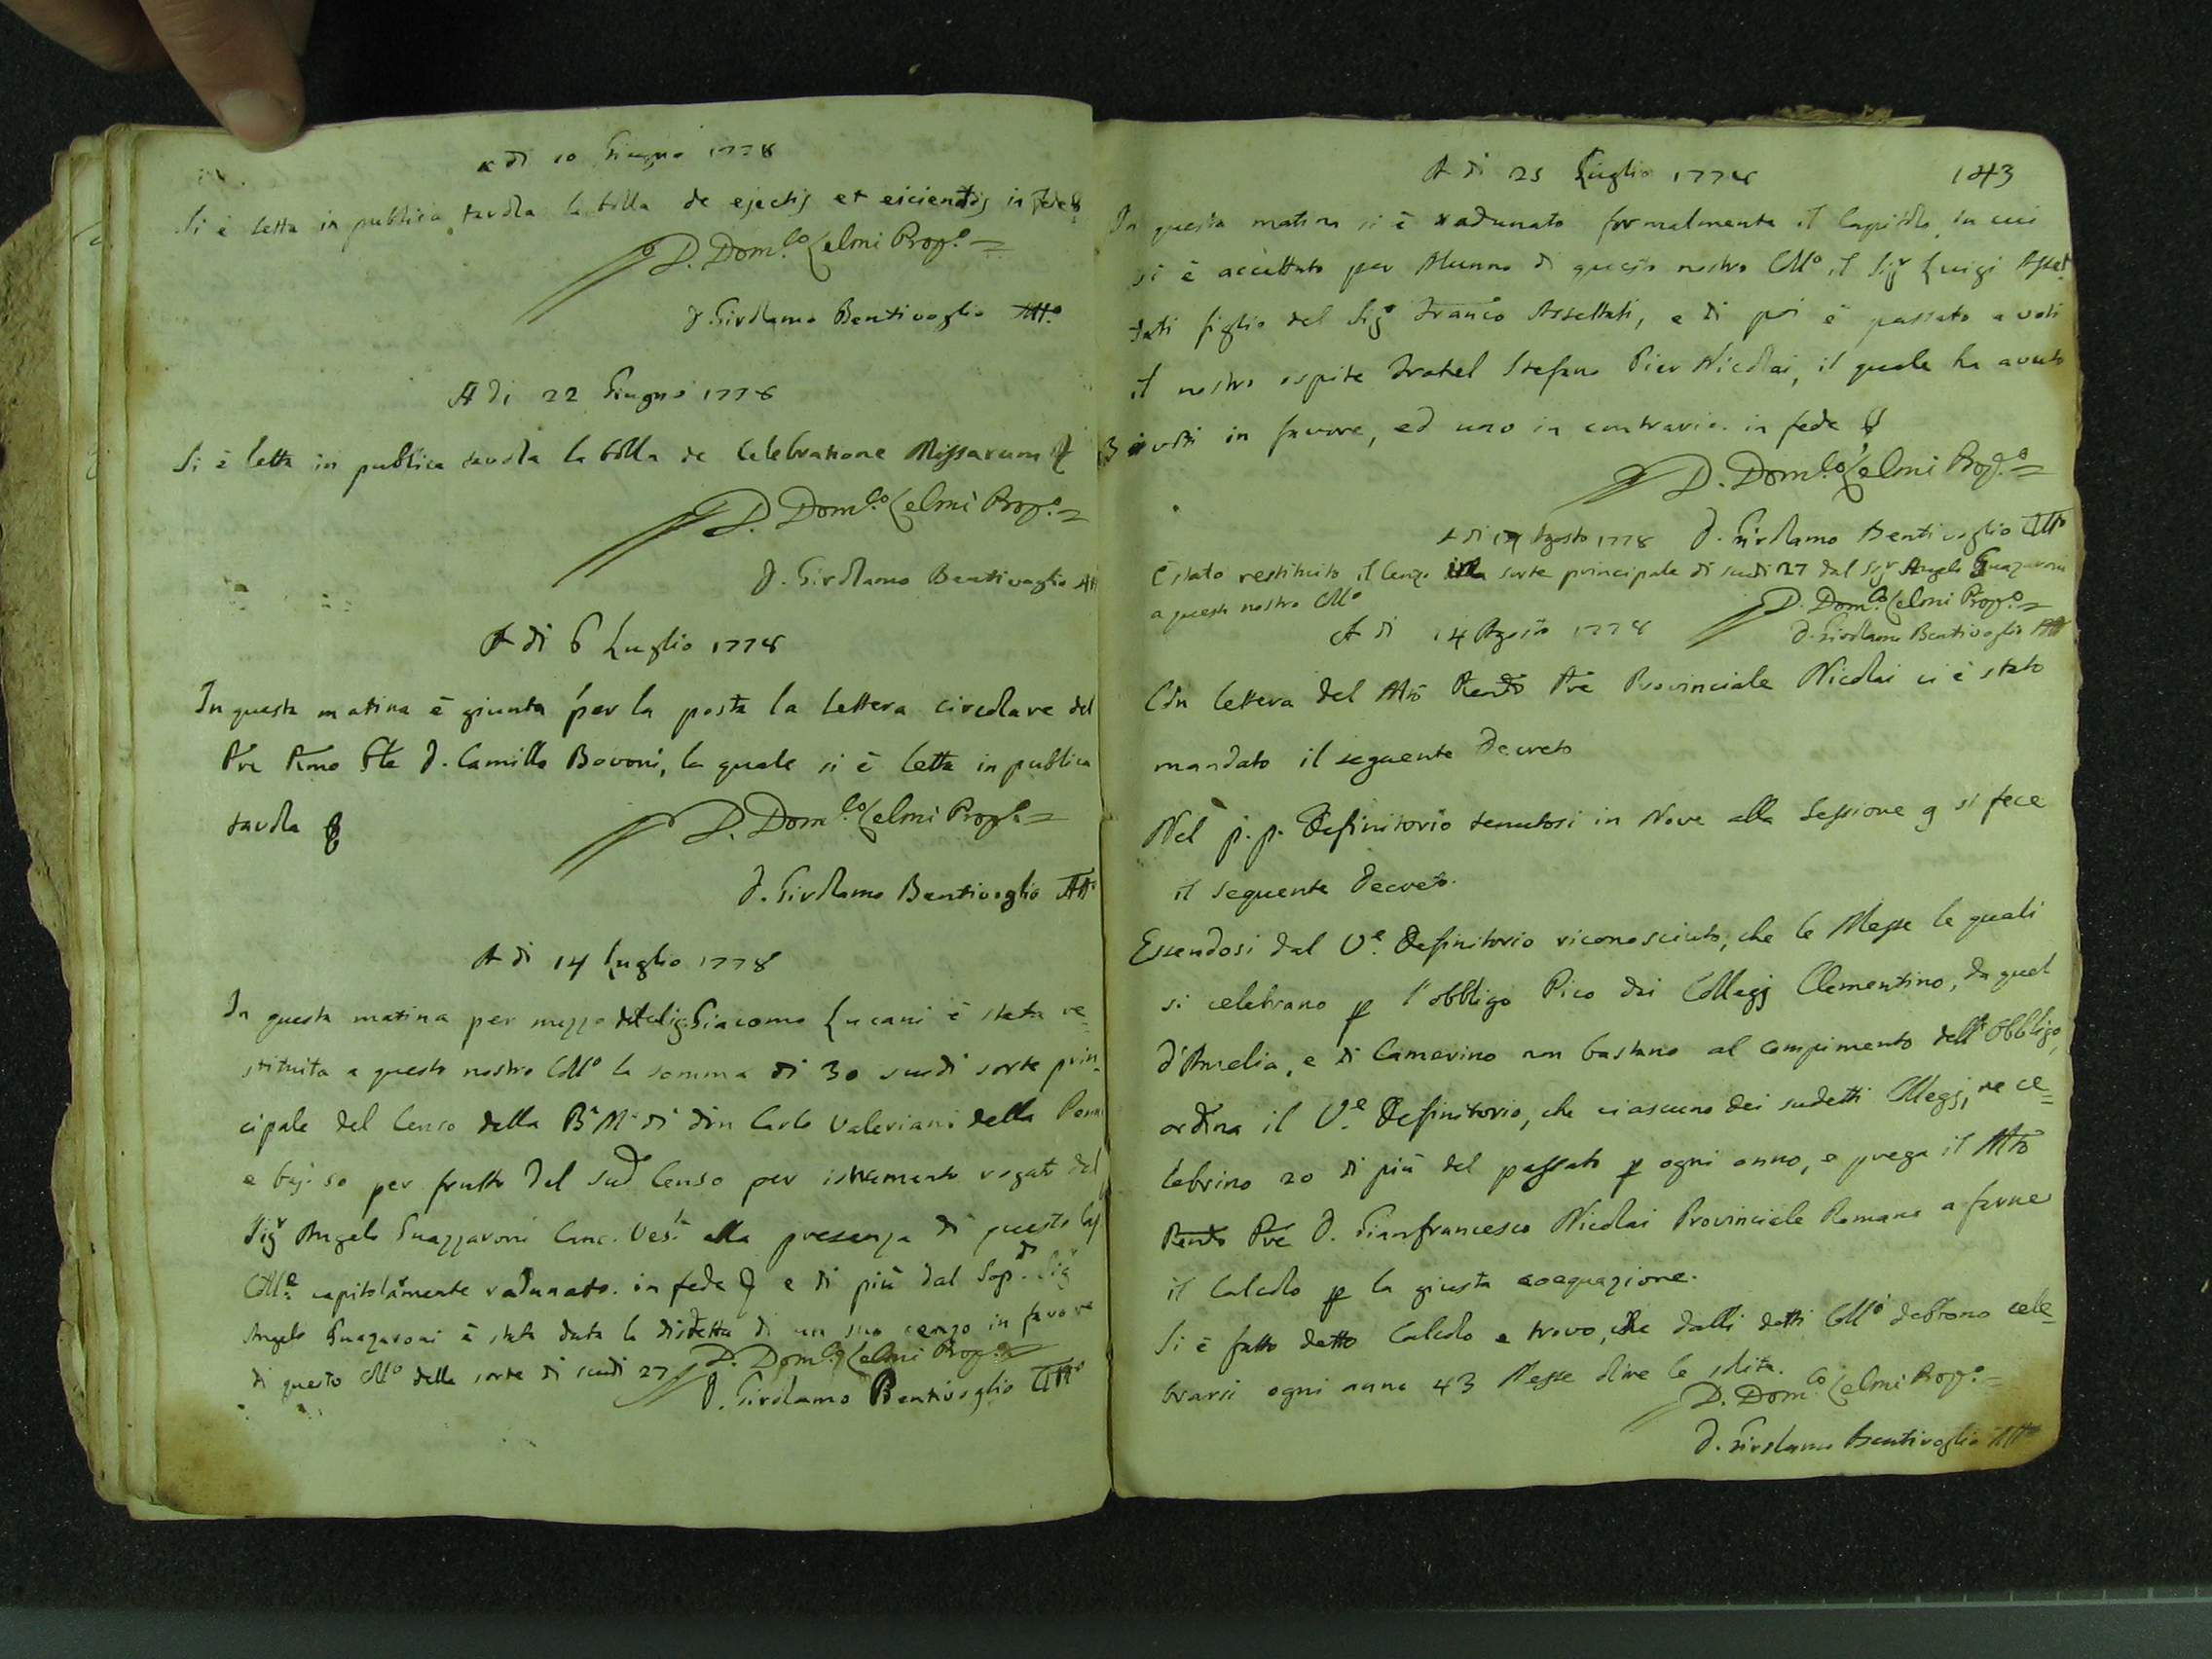 A di 10 Giugno 1778
Si è letta in publica tavola la bolla de ejectis et eiciendis in fede &
D. Dom.co Celmi Prop.o =
D. Girolamo Bentivoglio Att.o
A di 22 Giugno 1778
Si è letta in publica tavola la bolla de Celebratione Missarum &
D. Dom.co Celmi Prop.o =
D. Girolamo Bentivoglio Att
A di 6 Luglio 1778
In questa matina è giunta per la posta la lettera circolare del
Pre Rmo Gle D. Camillo Bovoni, la quale si è letta in publica
tavola &
D. Dom.co Celmi Prop.o =
D. Girolamo Bentivoglio Atto
A di 14 Luglio 1778
In questa matina per mezzo del Giacomo Lucani è stata re=
stituita a questo nostro Coll.o la somma di 30 scudi sorte prin=
cipale del Censo della B. M. di don Carlo Valeriani della
e baj: 50 per frutto del sud Censo per istrumento rogato dal
Sigr Angelo Guazzaroni Canc. Ves. alla presenza di questo
Coll.o capitolarmente radunato. in fede & e di più dal Sop.do Sig
Angelo Guazaroni è stata data la disdetta di un suo cenzo in favore
di questo Coll.o della sorte di scudi 27
D. Dom.co Celmi Prop.o =
D. Girolamo Bentivoglio Atto
143
A di 25 Luglio 1778
In questa matina si è radunato formalmente il Capitolo in cui
si è accettato per Alunno di questo nostro Coll.o il Sigr Luigi Asset
tati figlio del Sigr Franco Assettati, e di poi è passato a voti
il nostro ospite Fratel Stefano Pier Nicolai, il quale ha avuto
3 voti in favore, ed uno in contrario. in fede &
D. Dom.co Celmi Prop.o =
D. Girolamo Bentivoglio Atto
A di Agosto 1778
È stato restituito il Cenzo sorte principale di scudi 27 dal Sigr Angelo Guazaroni
a questo nostro Coll.o
D. Dom.co Celmi Prop.o =
D. Girolamo Bentivoglio Att
A di 14 Agosto 1778
Con lettera del Mto Rendo Pre Provinciale Nicolai ci è stato
mandato il seguente Decreto
Nel p. p. Definitorio tenutosi in Nove alla Sessione 9 si fece
il seguente Decreto.
Essendosi dal V.e Definitorio riconosciuto, che le Messe le quali
si celebrano p l'obbligo Pico dai Collegj Clementino, da quel
d'Amelia, e di Camerino non bastano al compimento dell'obbligo,
ordina il V.e Definitorio, che ciascuno dei sudetti Collegj, ne ce=
lebrino 20 di più del passato p ogni anno, e prega il Mto
Rendo Pre D. Gianfrancesco Nicolai Provinciale Romano a farne
il Calcolo p la giusta coequazione.
Si è fatto detto Calcolo e trovo, che dalli detti Coll.o debbono cele=
brarsi ogni anno 43 Messe oltre le solite.
D. Dom.co Celmi Prop.o =
D. Girolamo Bentivoglio Atto